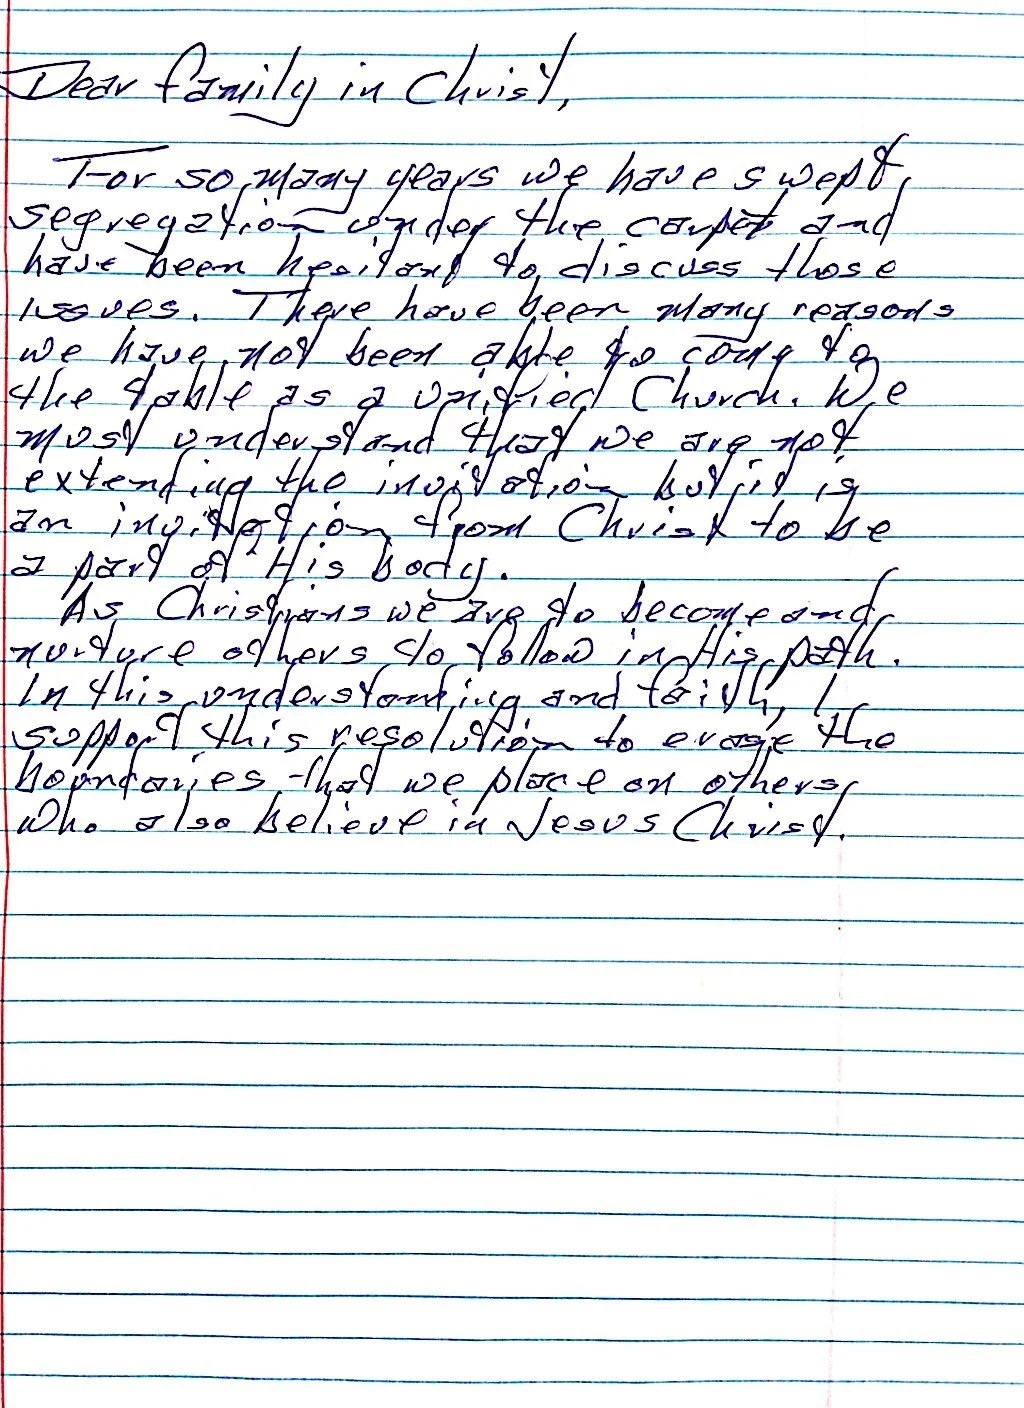 Dear family in Christ,
For so many years we have swept
segregation under the carpet and
have been hesitant to discuss those
issues. There have been many reasons
we have not been able to come to
the table as a unified Church. We
must understand that we are not
extending the invitation but it is
an invitation from Christ to be
a part of His body.
As Christians we are to become and
nurture others to follow in His path.
In this understanding and faith, I
support this resolution to erase the
boundaries that we place on others
who also believe in Jesus Christ.